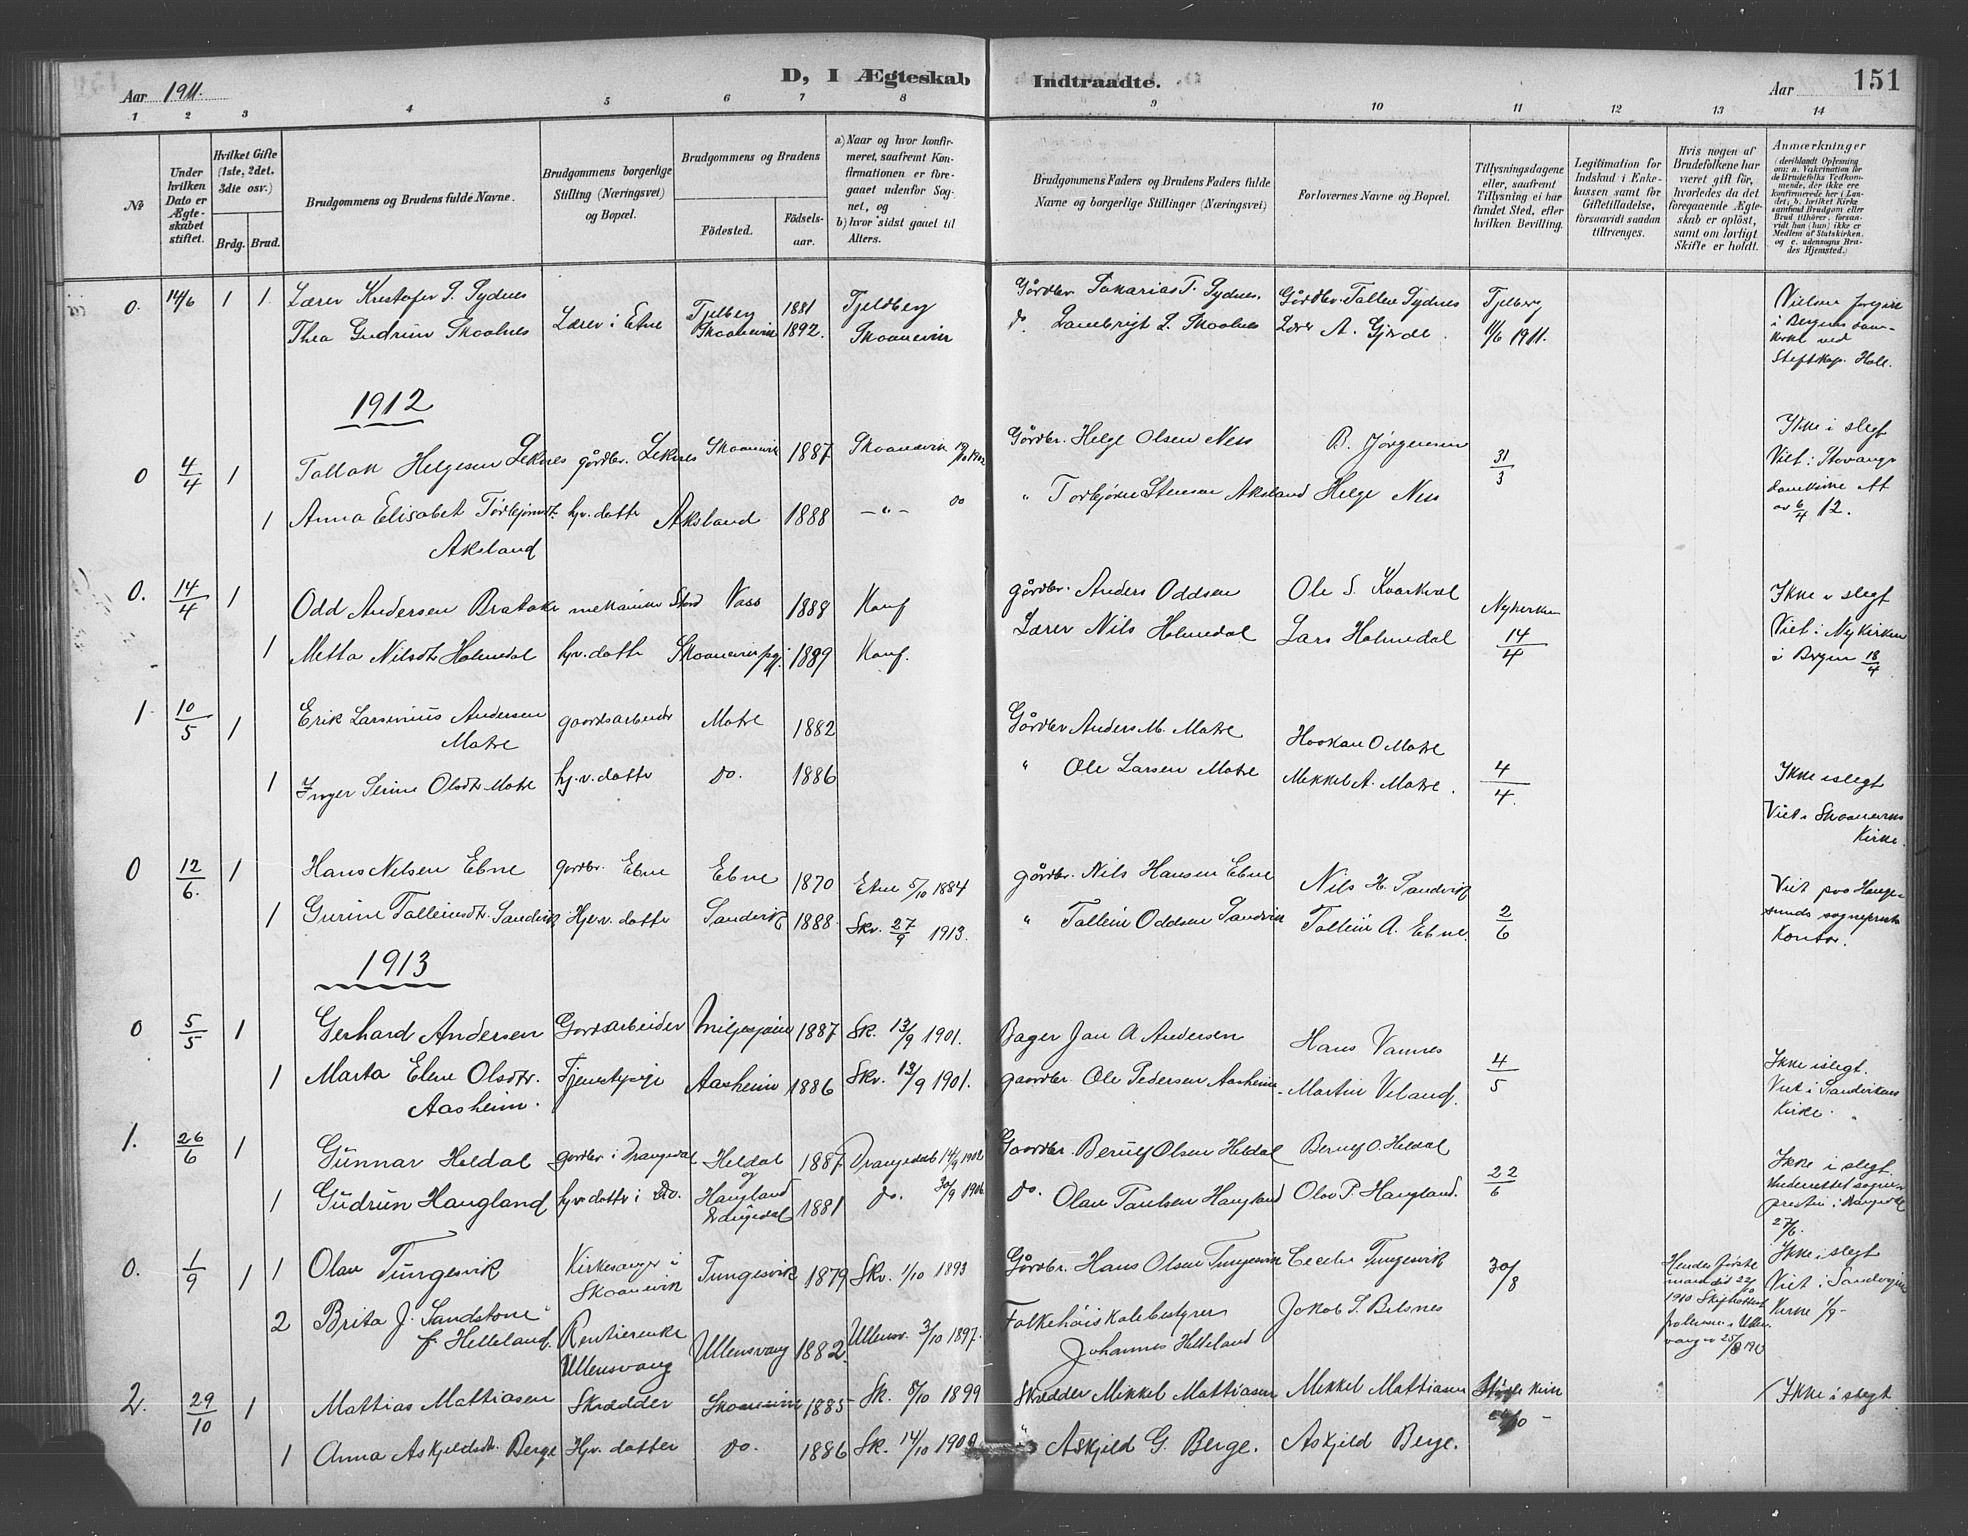 D, I Ægteskab Indtraadte.
151
Aar 1911.
Aar
1 2 3 4 5 6 7 8 9 10 11 12 13 14
No
Under hvilken Dato er Ægteskabet stiftet.
Hvilket Gifte (1ste, 2det, 3die osv.)
Brdg. Brud.
Brudgommens og Brudens fulde Navne.
Brudgommens borgerlige Stilling (Næringsvei) og Bopæl.
Brudgommens og Brudens
Fødested.
Fødselsaar.
a) Naar og hvor konfirmeret, saafremt Konfirmationen er foregaaet udenfor Sognet, og
b) hvor sidst gaaet til Alters.
Brudgommens Faders og Brudens Faders fulde Navne og borgerlige Stillinger (Næringsvei)
Forlovernes Navne og Bopæl.
Tillysningsdagene eller, saafremt Tillysning ei har fundet Sted, efter hvilken Bevilling.
Legitimation for Indskud i Enkekassen samt for Giftetilladelse, forsaavidt saadan tiltrænges.
Hvis nogen af Brudefolkene har været gift før, hvorledes da det foregaaende Ægteskab er opløst, samt om lovligt Skifte er holdt.
Anmærkninger
(deriblandt Oplysning om: a. Vakcination for de Brudefolks Vedkommende, der ikke ere konfirmerede her i Landet, b. hvilket Kirkesamfund Brudgom eller Brud tilhører, forsaavidt han (hun) ikke er Medlem af Statskirken, og c. udensogns Brudes Hjemsted.)
0. 14/6 1 1 Lærer Kristofer T. Tydnes Lærer i Etne Fjelberg 1881 Fjeldberg Gårdbr. Sakarias T. Tydnes. Gårdbr. Tallen Tydnes Fjelberg
Thea Gudrun Skaalnes Skaanevik 1892. Skaanevik do. Lambrigt L. Skaalnes Lærer A. Gjerde. 11/6 1911.
1912
0 4/4 1 Tallak Helgesen Leknes gårdbr. Leknes Skaanevik 1887 Skaanevik Gårdbr. Helge Olsen Ness B. Jørgensen 31/3 Ikke i slegt
1 Anna Elisabet Torbjørnsdt. Aksland hjv. datter Aksland 1888 — " — do " Torbjørn Stensen Aksland Helge Ness Viet i Stavanger domkirke
6/4 12.
0. 14/4 1 Odd Andersen Bratake mekaniker Stord Voss 1888 Konf gårdbr. Anders Oddsen Ole S. Kvarkval Nykirken 14/4 Ikke i slegt
1 Metta Nilsdtr Holmedal hjv. datter Skaanevik pgj. 1889 Konf. Lærer Nils Holmedal Lars Holmedal Viet i Nykirken i Bergen 18/4
1 10/5 1 Erik Larsinius Andersen Matre gaardsarbeider Matre 1882 Gårdbr Anders M. Matre Haakon O Matre 4/4.
1 Inger Serine Olsdtr Matre hj.v. datter do. 1886 " Ole Larsen Matre Mikkel A. Matre. Ikke i slegt
Viet i Skaaneviks Kirke.
0 12/6. 1 Hans Nilsen Ebne gardbr. Ebne Ebne 1870 Etne 5/10 1884 gårdbr. Nils Hansen Ebne Nils H. Sandvik 2/6 Viet paa Haugesunds sogneprests Kontor.
1 Gurine Talleivsdtr. Sandvik Hjv. datter Sandvik 1888 Skv. 27/9 1913. " Talleiv Oddsen Sandvik Talleiv A. Ebne.
1913
0 5/5 1 Gerhard Andersen Gardsarbeider Miljesjøen 1887 Sk. 13/9 1901. Bager Jan A Andersen Hans Vannes 4/5 Ikke i slegt.
1 Marta Elene Olsdtr. Aasheim. Tjenestepige Aasheim 1886 Skv. 13/9 1901. gaardbr. Ole Pedersen Aasheim Martin Veland. Viet i Sandvikens Kirke.
1. 26/6 1 Gunnar Heldal gardbr i Drangedal Heldal og 1887 Drangedal 14/9 1902 Gaardbr. Berulf Olsen Heldal Berulf O Heldal 22/6 Ikke i slegt.
1 Gudrun Haugland hjv datter i do. Haugland Drangedal 1881 do. 30/9 do. Olav Paulsen Haugland Olav P. Haugland. Underrettet sogneprestin i Drangedal 27/6.
0. 1/9 1 1 Olav Tungesvik Kirkesanger i Skaanevik Tungesvik 1879 Skv. 1/10 1893 Gårdbr. Hans Olsen Tungesvik Cecilie Tungesvik 30/8 Ikke i slegt
2 Brita J. Sandstone f. Helleland. Rentierenke Ullensvang Ullensvang 1882. Ullensv. 3/10 1897. Folkehøiskolebestyrer Johannes Helleland Jakob S. Belsnes Viet i Sandvigens Kirke 1/9-
Hendes første mand død 22/ 1910
2. 29/10 1 Mattias Mattiasen Skrædder Skaanevik 1885 Sk. 8/10 1899 Skrædder Mikkel Mattiasen Mikkel Mattiasen Ikke i slegt
1 Anna Askjeldsdtr. Berge Hjv. datter do. 1886 Sk. 14/10 1900 " Askjeld G. Berge. Askjeld Berge.